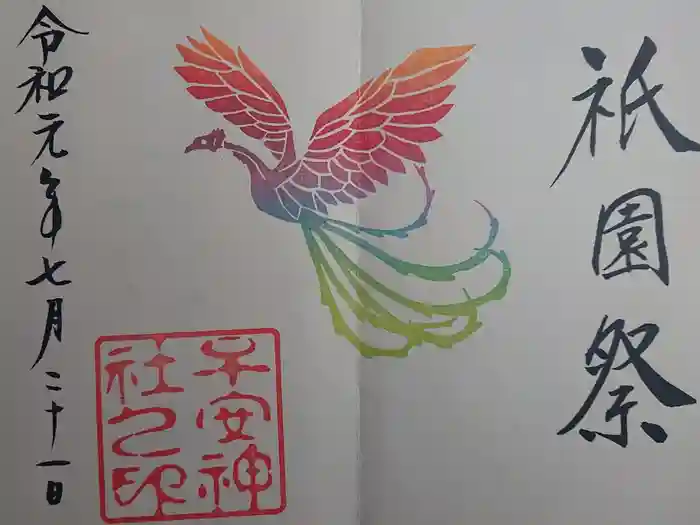 祇園祭
子安神社之印
令和元年七月二十一日